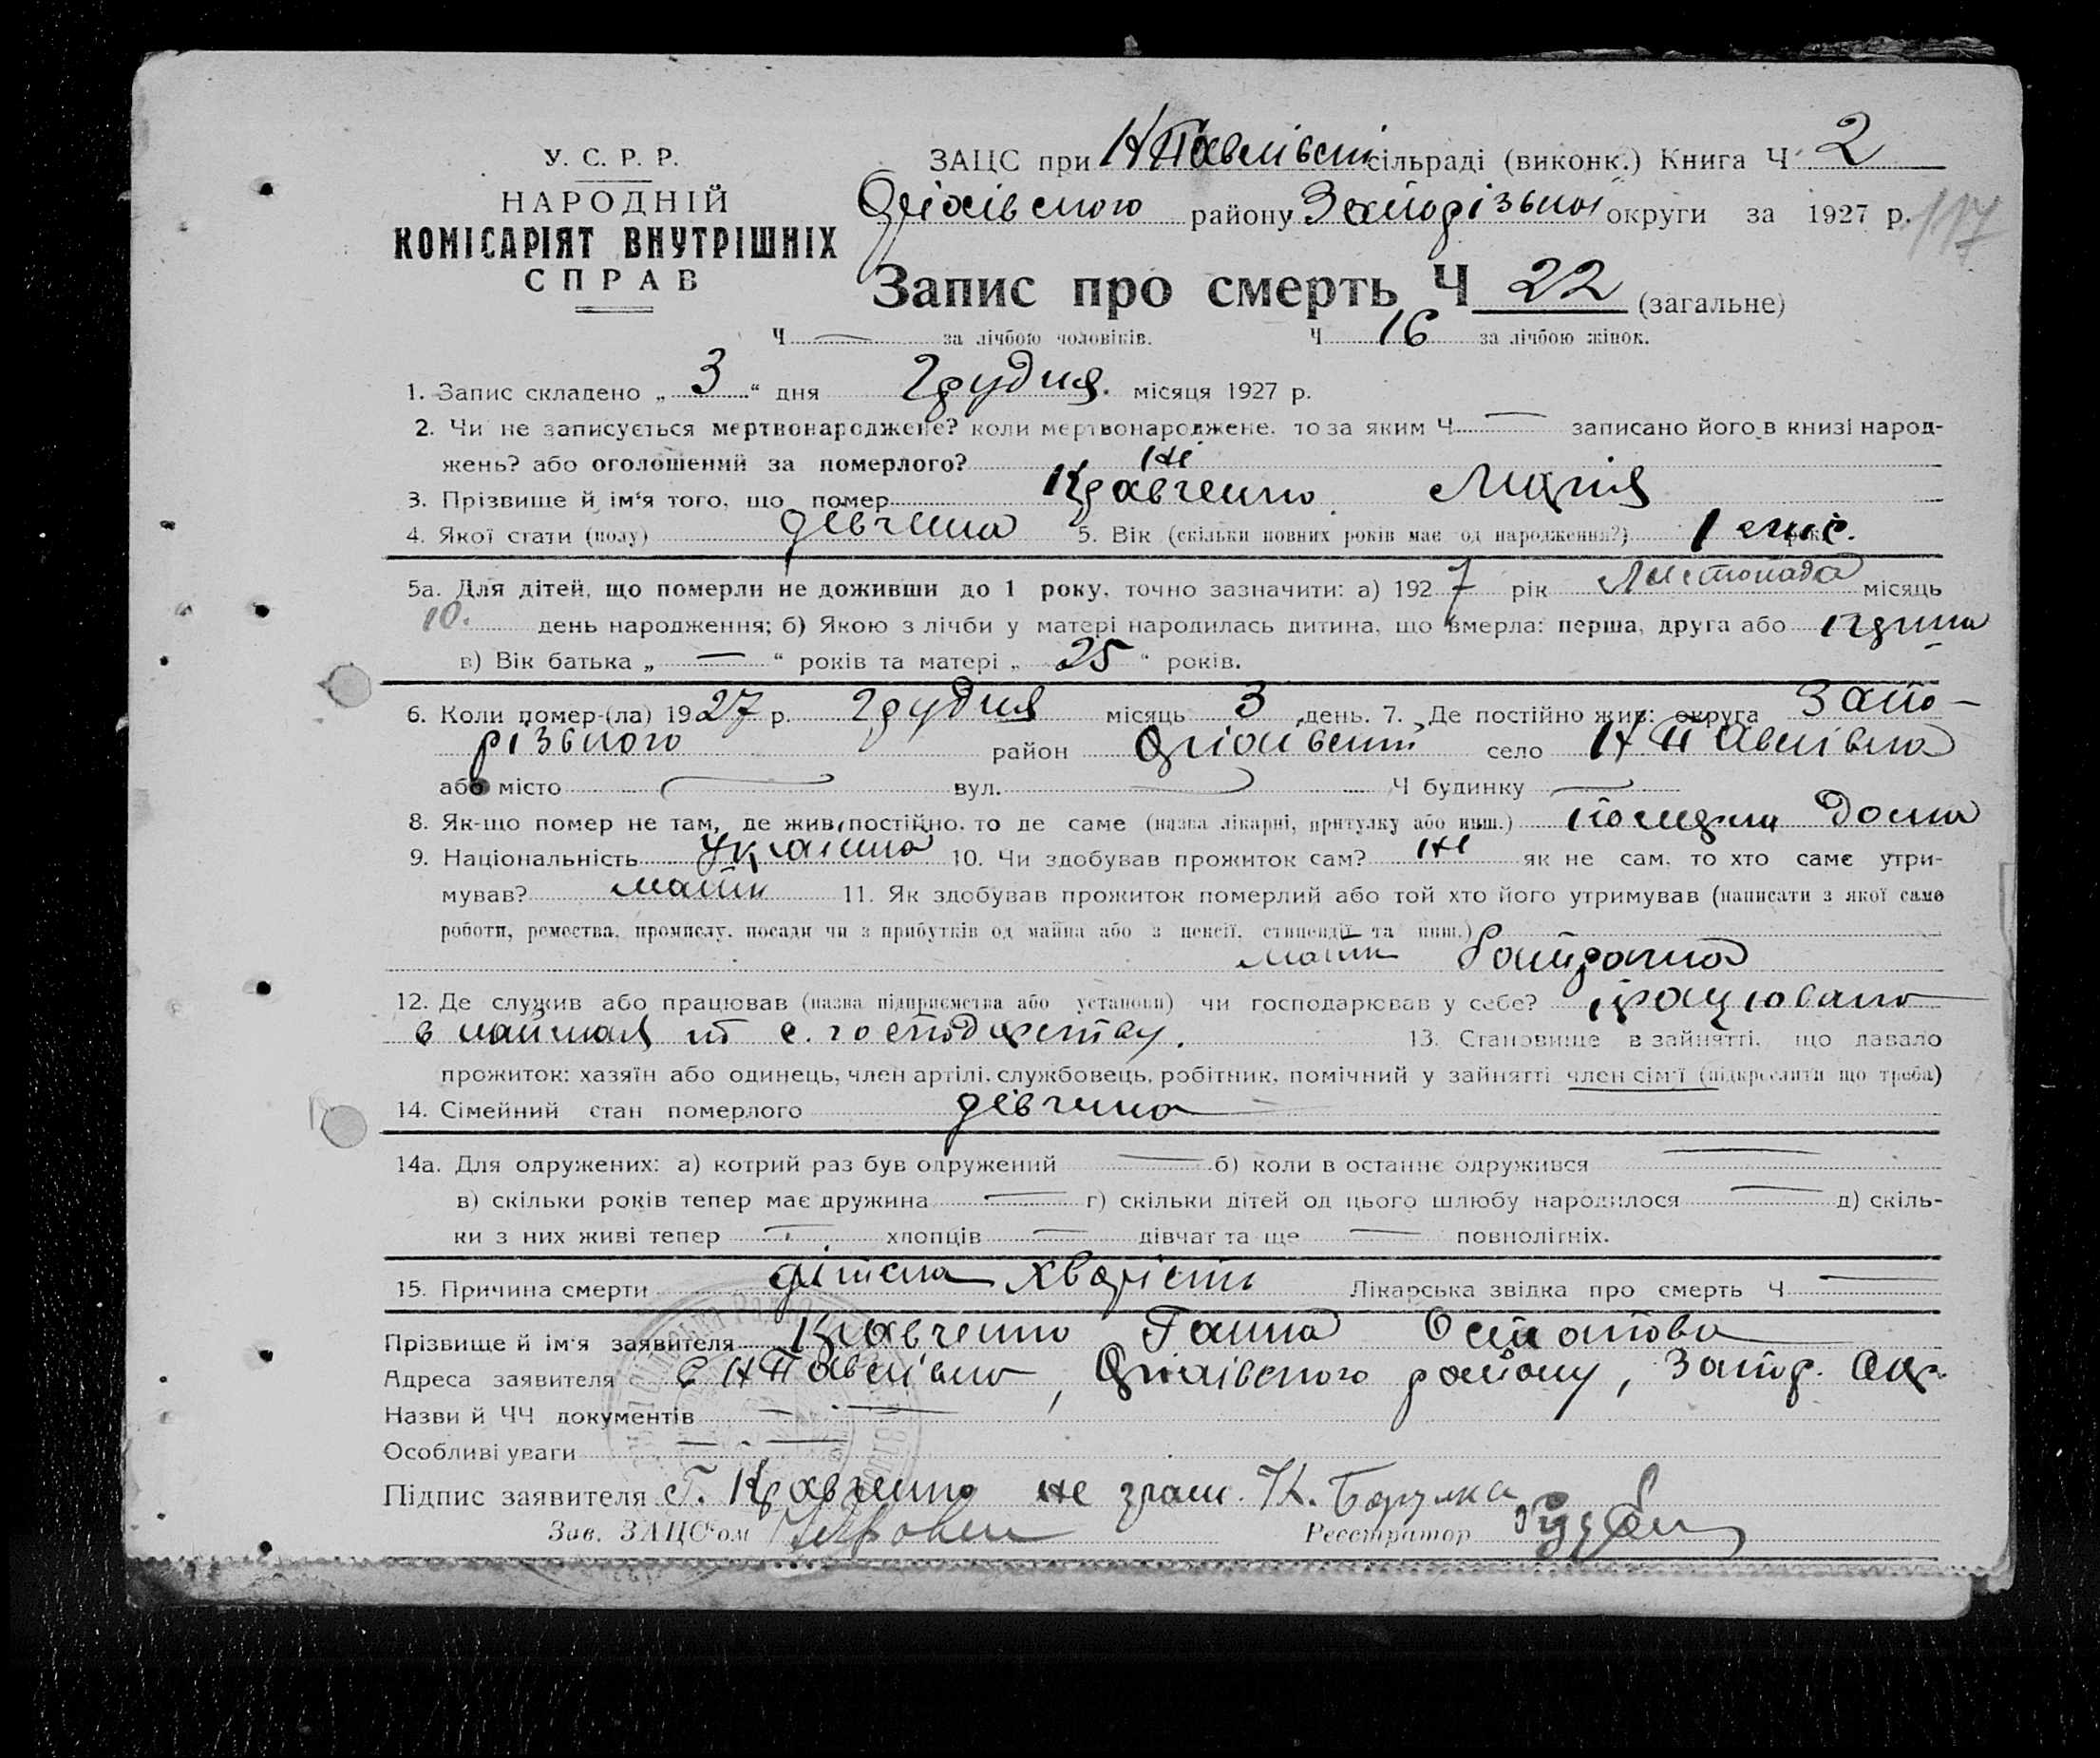 У. С. Р. Р.
НАРОДНІЙ
КОМІСАРІЯТ ВНУТРІШНІХ
СПРАВ
ЗАЦС при Н Павлівській сільраді (виконк.) Книга Ч 2
Оріхівського району Запорізької округи за 1927 р.
117
Запис про смерть Ч 22 (загальне)
Ч — за лічбою чоловіків. Ч 16 за лічбою жінок.
1. Запис складено „ 3 “ дня Грудня. місяця 1927 р.
2. Чи не записується мертвонароджене? коли мертвонароджене, то за яким Ч — записано його в книзі народ-
жень? або оголошений за померлого? Ні
3. Прізвище й ім'я того, що помер Кравченко Марія
4. Якої стати (полу) дівчина 5. Вік (скільки повних років має од народження?) 1 міс.
5а. Для дітей, що померли не доживши до 1 року, точно зазначити: а) 1927 рік Листопада місяць
10. день народження; б) Якою з лічби у матері народилась дитина, що вмерла: перша, друга або
в) Вік батька „ — “ років та матері „ 25 “ років.
6. Коли помер-(ла) 1927 р. Грудня місяць 3 день. 7. Де постійно жив: округа Запо-
різького район Оріхівський село Н Павлівка
або місто — вул. — Ч будинку —
8. Як-що помер не там, де жив постійно, то де саме (назва лікарні, притулку або инш.) померла дома
9. Національність Українка 10. Чи здобував прожиток сам? Ні як не сам, то хто саме утри-
мував? мати 11. Як здобував прожиток померлий або той хто його утримував (написати з якої саме
роботи, ремества, промислу, посади чи з прибутків од майна або з пенсії, стипендії та инш.)
мати батрачка
12. Де служив або працював (назва підприємства або установи) чи господарював у себе? працювала
в наймах по с. господарству. 13. Становище в зайнятті, що давало
прожиток: хазяїн або одинець, член артілі, службовець, робітник, помічний у зайнятті член сім'ї (підкреслити що треба)
14. Сімейний стан померлого дівчина
14а. Для одружених: а) котрий раз був одружений — б) коли в останнє одружився —
в) скільки років тепер має дружина — г) скільки дітей од цього шлюбу народилося — д) скіль-
ки з них живі тепер — хлопців — дівчат та ще — повнолітніх.
15. Причина смерти дітська хворість Лікарська звідка про смерть Ч —
Прізвище й ім'я заявителя Кравченко Ганна Остапова
Адреса заявителя с Н Павлівка, Оріхівського району, Запор. Окр.
Назви й ЧЧ документів —
Особливі уваги —
Підпис заявителя Г. Кравченко не грам.
Зав. ЗАЦС'ом Реєстратор